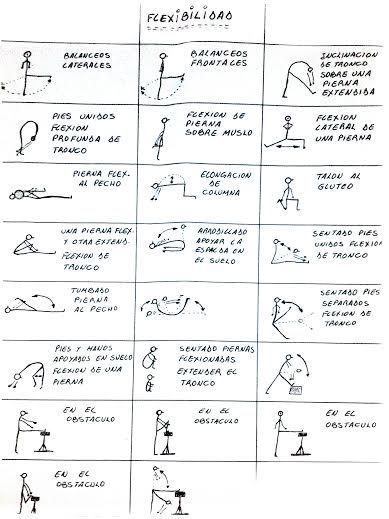 FLEXIBILIDAD
BALANCEOS
LATERALES
BALANCEOS
FRONTALES
INCLINACION
DE TRONCO
SOBRE UNA
PIERNA
EXTENDIDA
PIES UNIDOS
FLEXION
PROFUNDA DE
TRONCO
FLEXION DE
PIERNA
SOBRE MUSLO
FLEXION
LATERAL DE
UNA PIERNA
PIERNA FLEX-
AL PECHO
ELONGACION
DE
COLUMNA
TALON AL
GLUTEO
UNA PIERNA FLEX-
Y OTRA EXTEND-
FLEXION DE
TRONCO
ARRODILLADO
APOYAR LA
ESPALDA EN
EL SUELO
SENTADO PIES
UNIDOS FLEXION
DE TRONCO
TUMBADO
PIERNA
AL PECHO
SENTADO PIES
SEPARADOS
FLEXION DE
TRONCO
PIES Y MANOS
APOYADOS EN SUELO
FLEXION DE UNA
PIERNA
SENTADO PIERNAS
FLEXIONADAS
EXTENDER EL
TRONCO
EN EL
OBSTACULO
EN EL
OBSTACULO
EN EL
OBSTACULO
EN EL
OBSTACULO